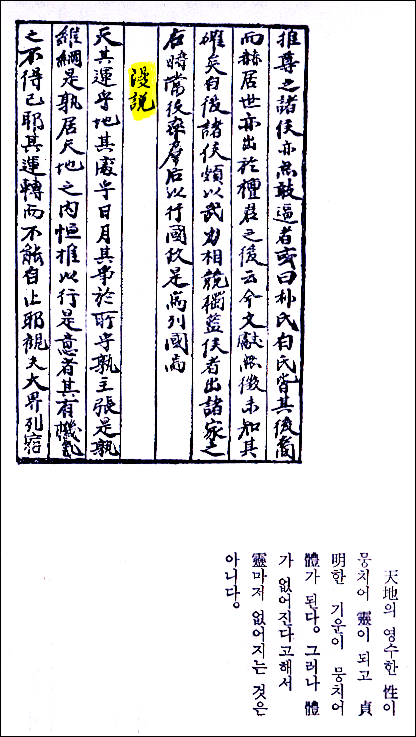 推尊之諸侯亦無敢逼者或曰朴氏白氏皆其後裔
而赫居世亦出於檀君之後云今文獻無徵未知其
確矣自後諸侯頗以武力相競獨藍侯者出諸家之
右時常後率羣后以行國政是爲列國焉
漫說
天其運乎地其處乎日月其爭於所乎孰主張是孰
維綱是孰居天地之內恒推以行是意者其有機
之不得已耶其運轉而不能自止耶觀夫大界列宿
天地의 영수한 性이
뭉치어 靈이 되고 貞
明한 기운이 뭉치어
體가 된다。그러나 體
가 없어진다고해서
靈마저 없어지는 것은
아니다。